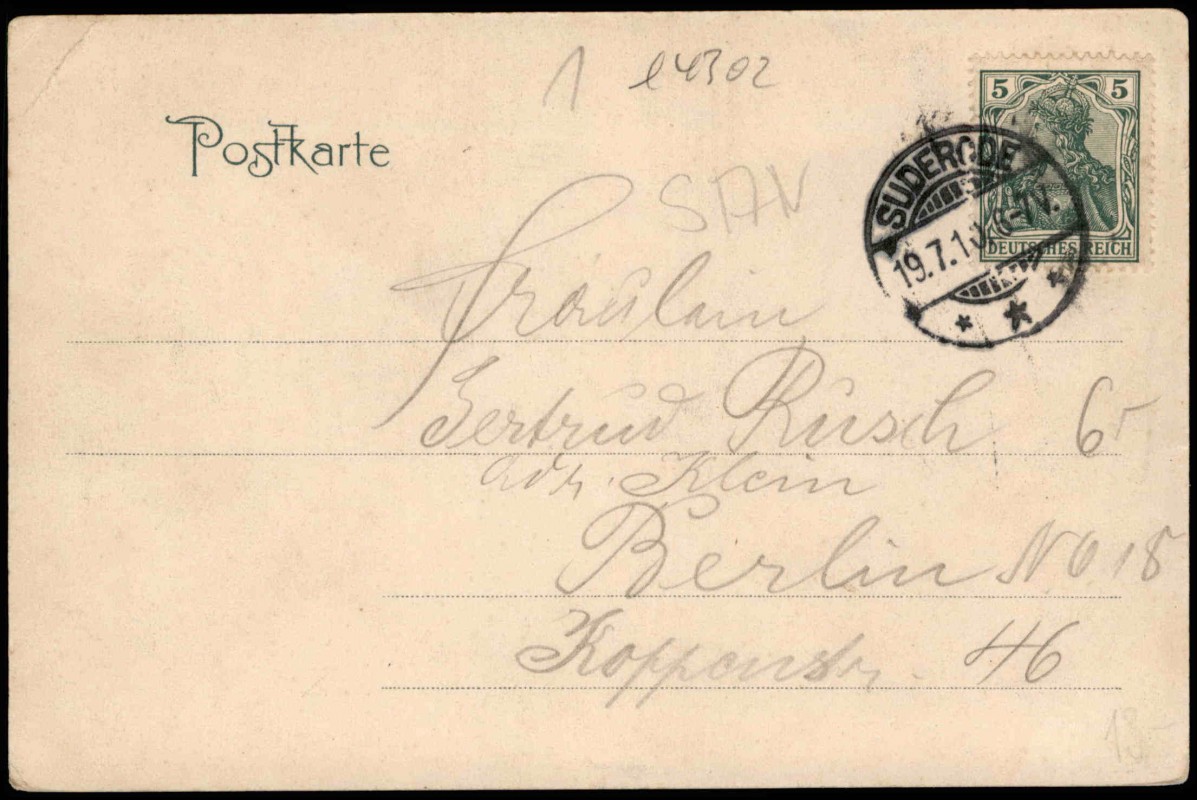 1 e4302
Postkarte
5 5
DEUTSCHES REICH
SUDERODE
19.7.1 6-7V.
STAV
Fräulein
Gertrud Rusch 6-
adr. Klein
Berlin NO 18
Koppenstr. 46
13-